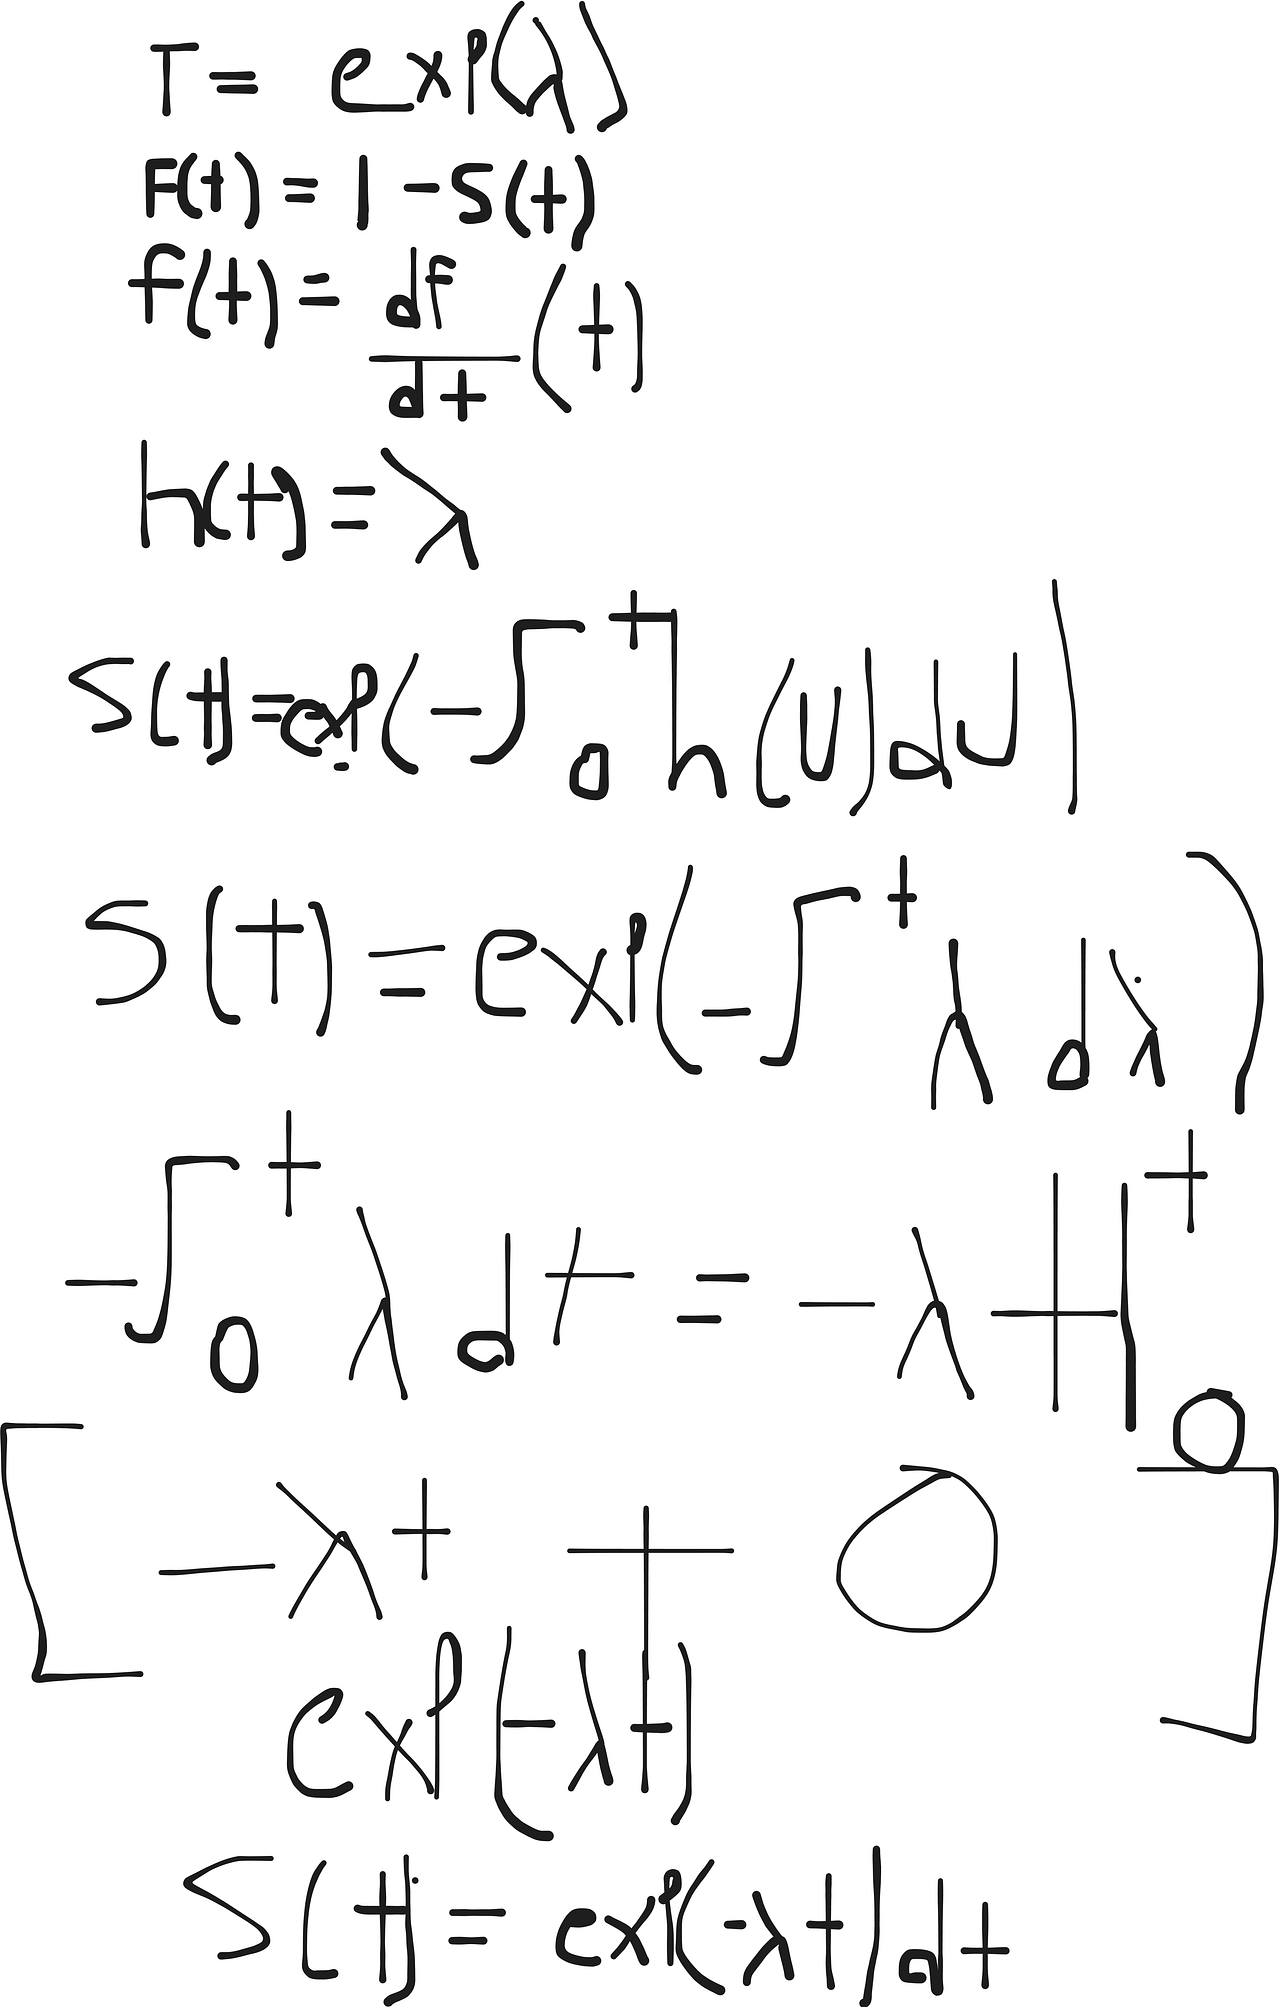 T = exp(λ)
F(t) = 1 - S(t)
f(t) = dF/dt (t)
h(t) = λ
S(t) = exp(-∫₀ᵗ h(u)du)
S(t) = exp(-∫ᵗ λ dλ)
-∫₀ᵗ λ dt = -λt|₀ᵗ
[-λt + 0]
exp(-λt)
S(t) = exp(-λt)dt